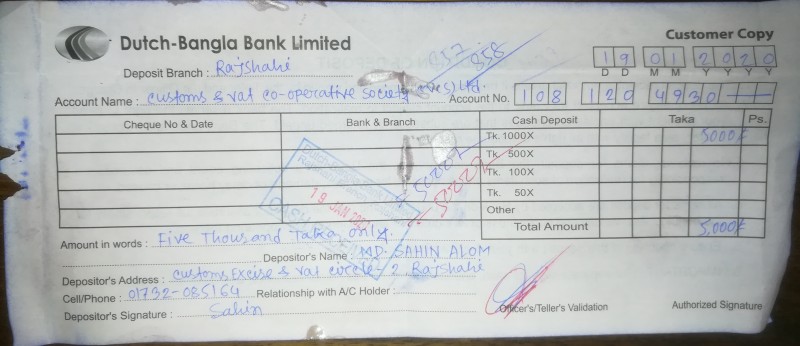 Dutch-Bangla Bank Limited
Customer Copy
557 558
19 01 2020
D D M M Y Y Y Y
Deposit Branch : Rajshahi
Account Name : Customs & Vat co-operative society Ltd. Account No. 108 120 4930
Cheque No & Date Bank & Branch Cash Deposit Taka Ps.
Tk. 1000X 5000/
Tk. 500X
Tk. 100X
Tk. 50X
Other
Total Amount 5,000/
19 JAN
CASH
Amount in words : Five Thousand Taka only.
Depositor's Name : MD. SAHIN ALOM
Depositor's Address : Customs Excise & Vat circle-2, Rajshahi
Cell/Phone : 01732-085164 Relationship with A/C Holder :
Depositor's Signature : Sahin
Officer's/Teller's Validation Authorized Signature